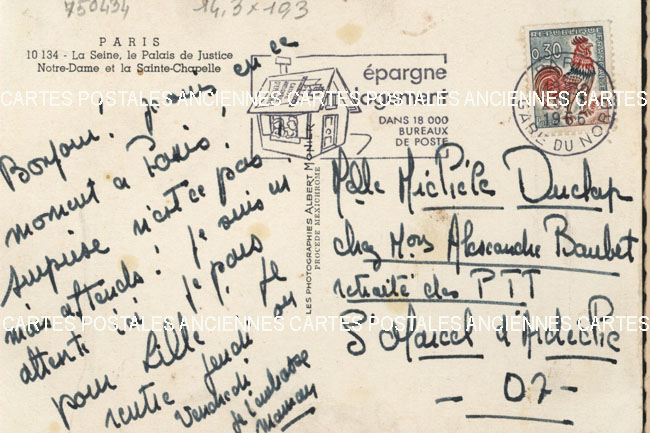 750434
14,3 x 19,3
PARIS
10 134 - La Seine, le Palais de Justice
Notre-Dame et la Sainte-Chapelle
Bonjour! je suis en ce
moment à Paris!
surprise n'est ce pas
mais attends! je suis en
attente je pars
pour Lille! je
rentre jeudi ou
Vendredi
je t'embrasse
Maman
LES PHOTOGRAPHIES ALBERT MONIER
PROCEDE MEXICHROME
épargne
logement
DANS 18 000
BUREAUX
DE POSTE
REPUBLIQUE FRANÇAISE
0,30
PARIS
1966
GARE DU NORD
Melle Michèle Duclap
chez Mons Alexandre Baubet
retraité des PTT
St Marcel d'Ardèche
- 07 -
CARTES POSTALES ANCIENNES CARTES POSTALES ANCIENNES CARTES
CARTES POSTALES ANCIENNES CARTES POSTALES ANCIENNES CARTES